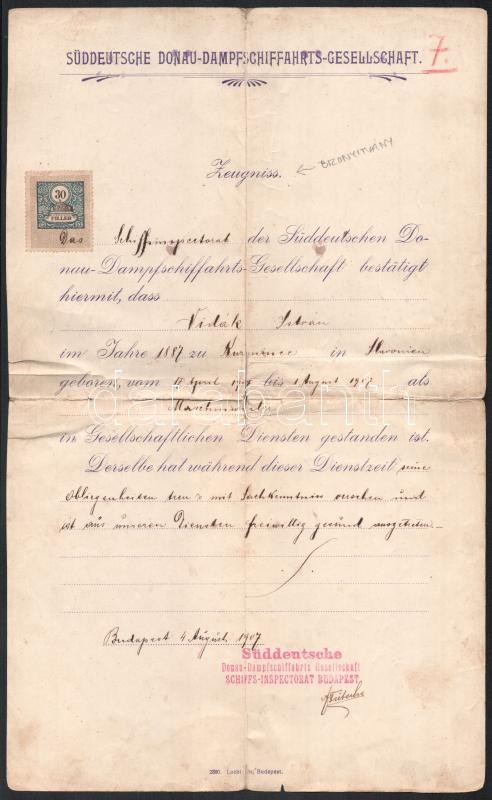 SÜDDEUTSCHE DONAU-DAMPFSCHIFFAHRTS-GESELLSCHAFT.
7.
Zeugniss.
BIZONYITVÁNY
30
FILLÉR
Das Schiffsinspectorat der Süddeutschen Do-
nau-Dampfschiffahrts-Gesellschaft bestätigt
hiermit, dass
Vidák István
im Jahre 1887 zu in Slavonien
geboren, vom April bis 1 August 1907 als
in Gesellschaftlichen Diensten gestanden ist.
Derselbe hat während dieser Dienstzeit seine
Obliegenheiten treu & mit Sachkenntniss und
ist aus unseren Diensten freiwillig gesund ausgetreten.
Budapest 4 August 1907
Süddeutsche
Donau-Dampfschiffahrts Gesellschaft
SCHIFFS-INSPECTORAT BUDAPEST.
Budapest.
darabanth